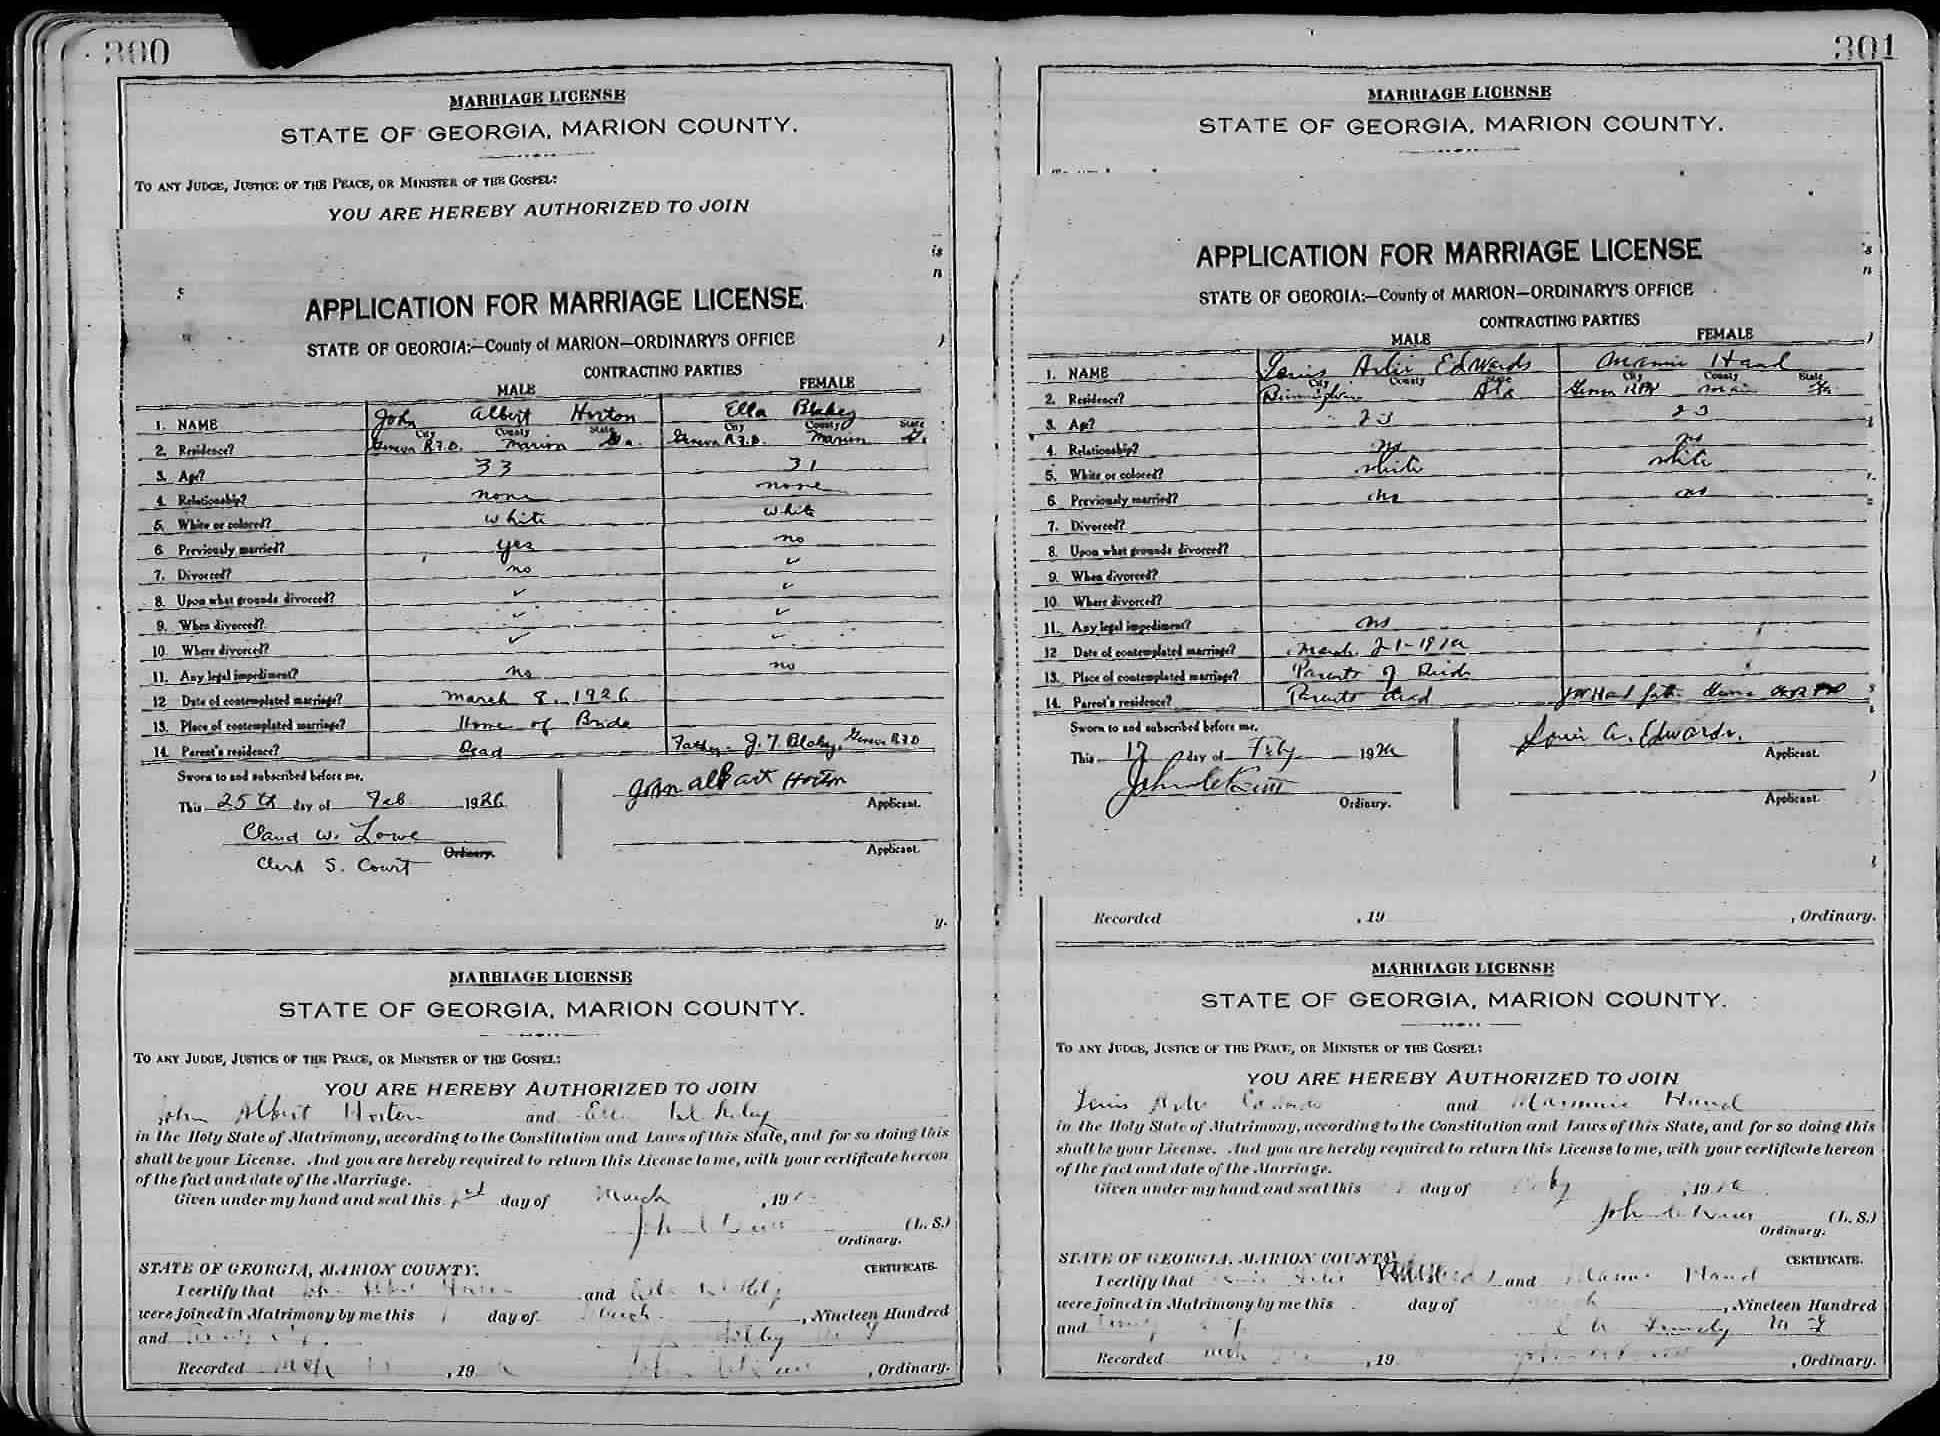 300
MARRIAGE LICENSE
STATE OF GEORGIA, MARION COUNTY.
TO ANY JUDGE, JUSTICE OF THE PEACE, OR MINISTER OF THE GOSPEL:
YOU ARE HEREBY AUTHORIZED TO JOIN
is
n
APPLICATION FOR MARRIAGE LICENSE
STATE OF GEORGIA:—County of MARION—ORDINARY'S OFFICE
CONTRACTING PARTIES
MALE FEMALE
1. NAME John Albert Horton Ella Blakey
City County State City County State
2. Residence? Geneva R.F.D. Marion Ga. Geneva R.F.D. Marion Ga.
3. Age? 33 31
4. Relationship? none none
5. White or colored? white white
6. Previously married? yes no
7. Divorced? no ✓
8. Upon what grounds divorced? ✓ ✓
9. When divorced? ✓ ✓
10. Where divorced? ✓ ✓
11. Any legal impediment? no no
12 Date of contemplated marriage? March 8, 1926
13. Place of contemplated marriage? Home of Bride
14. Parent's residence? Dead Father - J. T. Blakey, Geneva R.F.D
Sworn to and subscribed before me.
This 25th day of Feb 1926
John Albert Horton
Applicant.
Claud W. Lowe
Ordinary.
Clerk S. Court
Applicant.
y.
MARRIAGE LICENSE
STATE OF GEORGIA, MARION COUNTY.
TO ANY JUDGE, JUSTICE OF THE PEACE, OR MINISTER OF THE GOSPEL:
YOU ARE HEREBY AUTHORIZED TO JOIN
John Albert Horton and
in the Holy State of Matrimony, according to the Constitution and Laws of this State, and for so doing this
shall be your License. And you are hereby required to return this License to me, with your certificate hereon
of the fact and date of the Marriage.
Given under my hand and seal this day of March , 19
John (L. S.)
Ordinary.
STATE OF GEORGIA, MARION COUNTY. CERTIFICATE.
I certify that John Albert Horton and
were joined in Matrimony by me this day of March , Nineteen Hundred
and
Recorded , 19 , Ordinary.
301
MARRIAGE LICENSE
STATE OF GEORGIA, MARION COUNTY.
APPLICATION FOR MARRIAGE LICENSE
STATE OF GEORGIA:—County of MARION—ORDINARY'S OFFICE
CONTRACTING PARTIES
MALE FEMALE
1. NAME Louis Arlie Edwards Mamie Hand
City County State City County State
2. Residence? Birmingham Ala Ga.
3. Age? 23 23
4. Relationship? no no
5. White or colored? white white
6. Previously married? no no
7. Divorced?
8. Upon what grounds divorced?
9. When divorced?
10. Where divorced?
11. Any legal impediment? no
12 Date of contemplated marriage? March 21-192
13. Place of contemplated marriage? Parents of Bride
14. Parent's residence? Parents dead
Sworn to and subscribed before me.
This 17 day of Feby 192
Louis A. Edwards.
Applicant.
John
Ordinary.
Applicant.
Recorded , 19 , Ordinary.
MARRIAGE LICENSE
STATE OF GEORGIA, MARION COUNTY.
TO ANY JUDGE, JUSTICE OF THE PEACE, OR MINISTER OF THE GOSPEL:
YOU ARE HEREBY AUTHORIZED TO JOIN
Louis Edwards and Hand
in the Holy State of Matrimony, according to the Constitution and Laws of this State, and for so doing this
shall be your License. And you are hereby required to return this License to me, with your certificate hereon
of the fact and date of the Marriage.
Given under my hand and seal this day of , 19
John (L. S.)
Ordinary.
STATE OF GEORGIA, MARION COUNTY. CERTIFICATE.
I certify that and Mamie Hand
were joined in Matrimony by me this day of , Nineteen Hundred
and M G
Recorded , 19 , Ordinary.